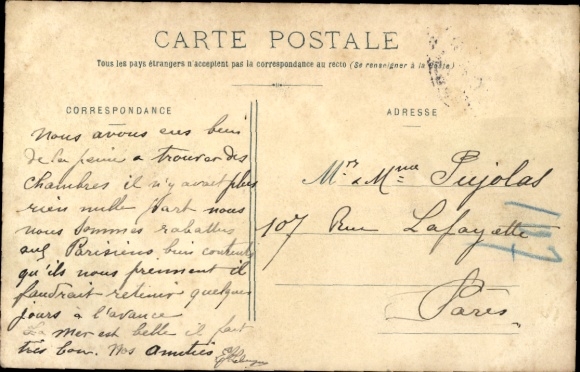 CARTE POSTALE
Tous les pays étrangers n'acceptent pas la correspondance au recto (Se renseigner à la Poste)
CORRESPONDANCE
Nous avons eu bien
de la peine a trouver des
chambres il n'y avait plus
rien nulle part nous
nous sommes rabattus
aux Parisiens bien contents
qu'ils nous prennent il
faudrait retenir quelques
jours a l'avance
La mer est belle il fait
très bon. Nos amitiés
ADRESSE
Mr & Mme Pujolas
107 Rue Lafayette
Paris